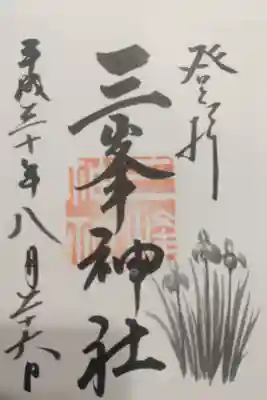 登拝
三峯神社
平成三十年八月二十六日